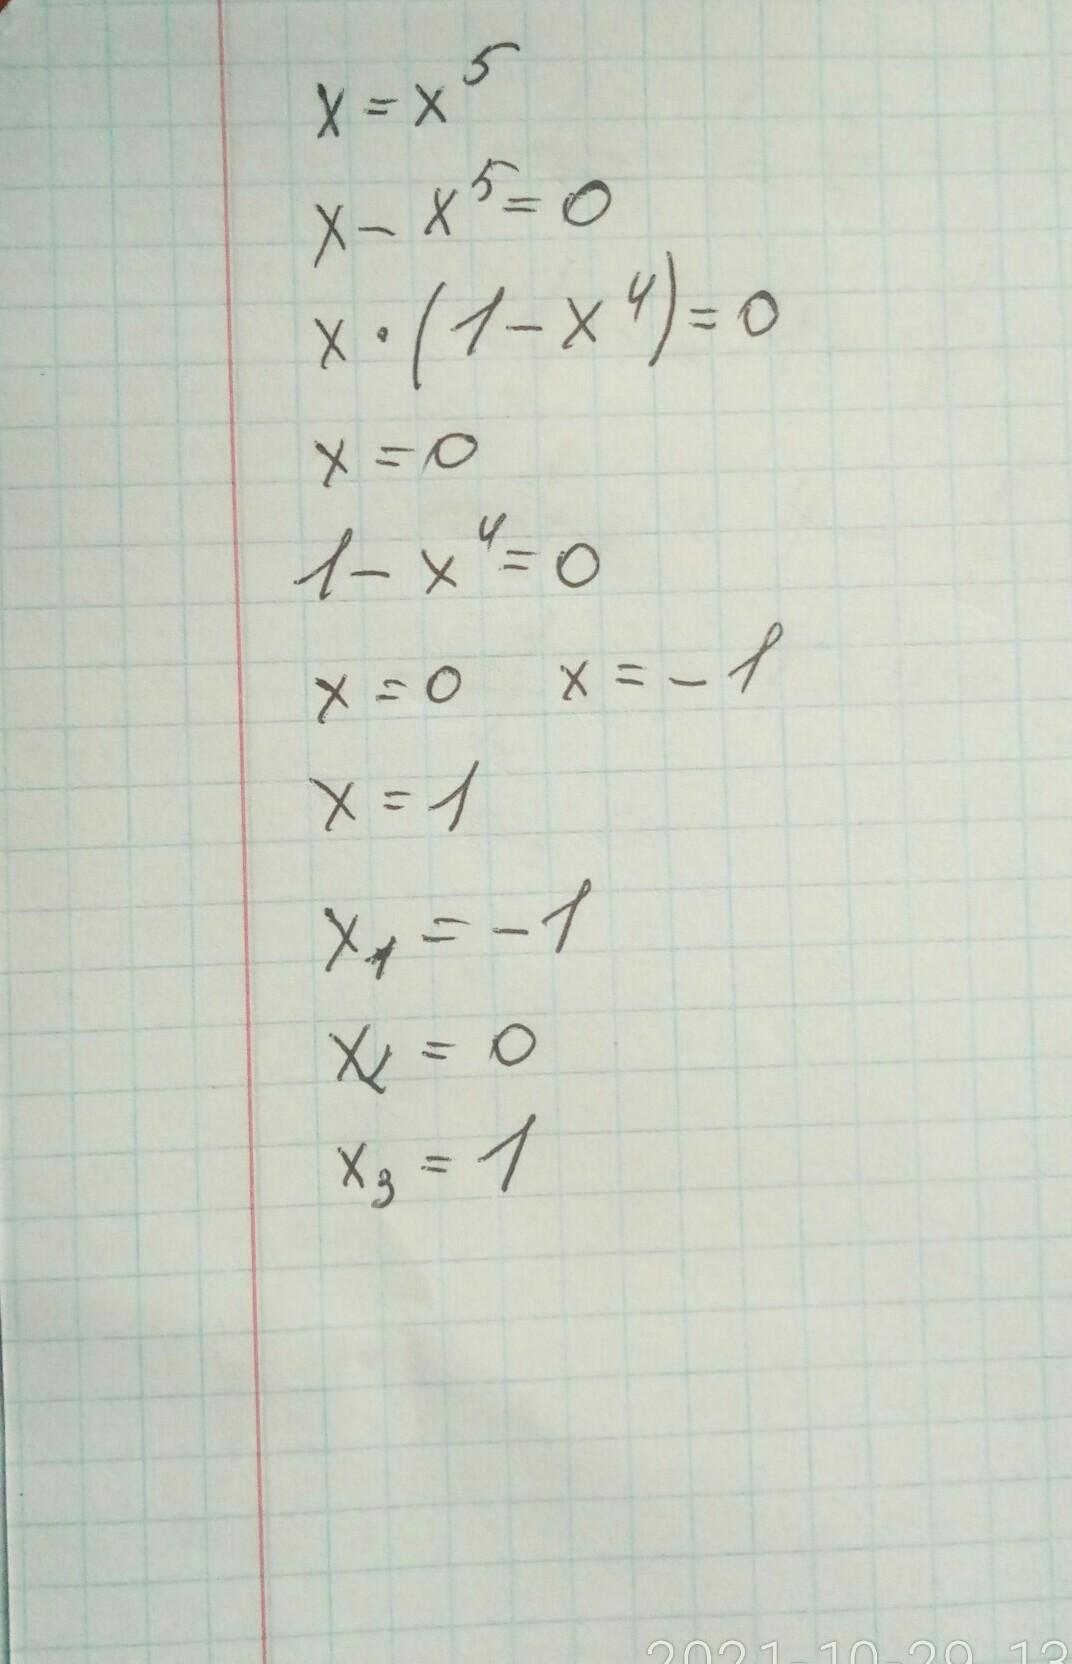 x = x⁵
x - x⁵ = 0
x · (1 - x⁴) = 0
x = 0
1 - x⁴ = 0
x = 0 x = -1
x = 1
x₁ = -1
x₂ = 0
x₃ = 1
2021-10-29 13